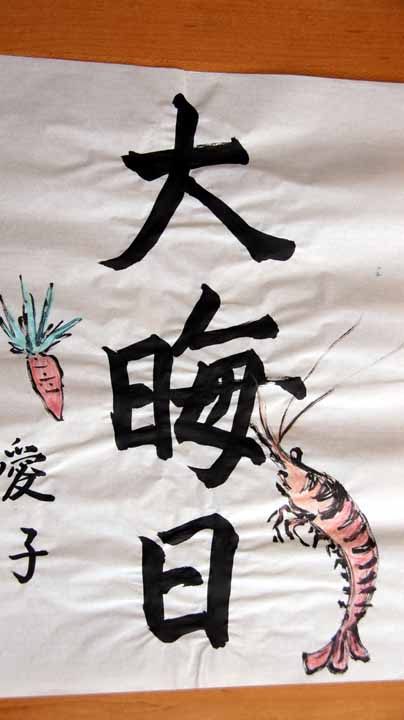 大晦日
愛子